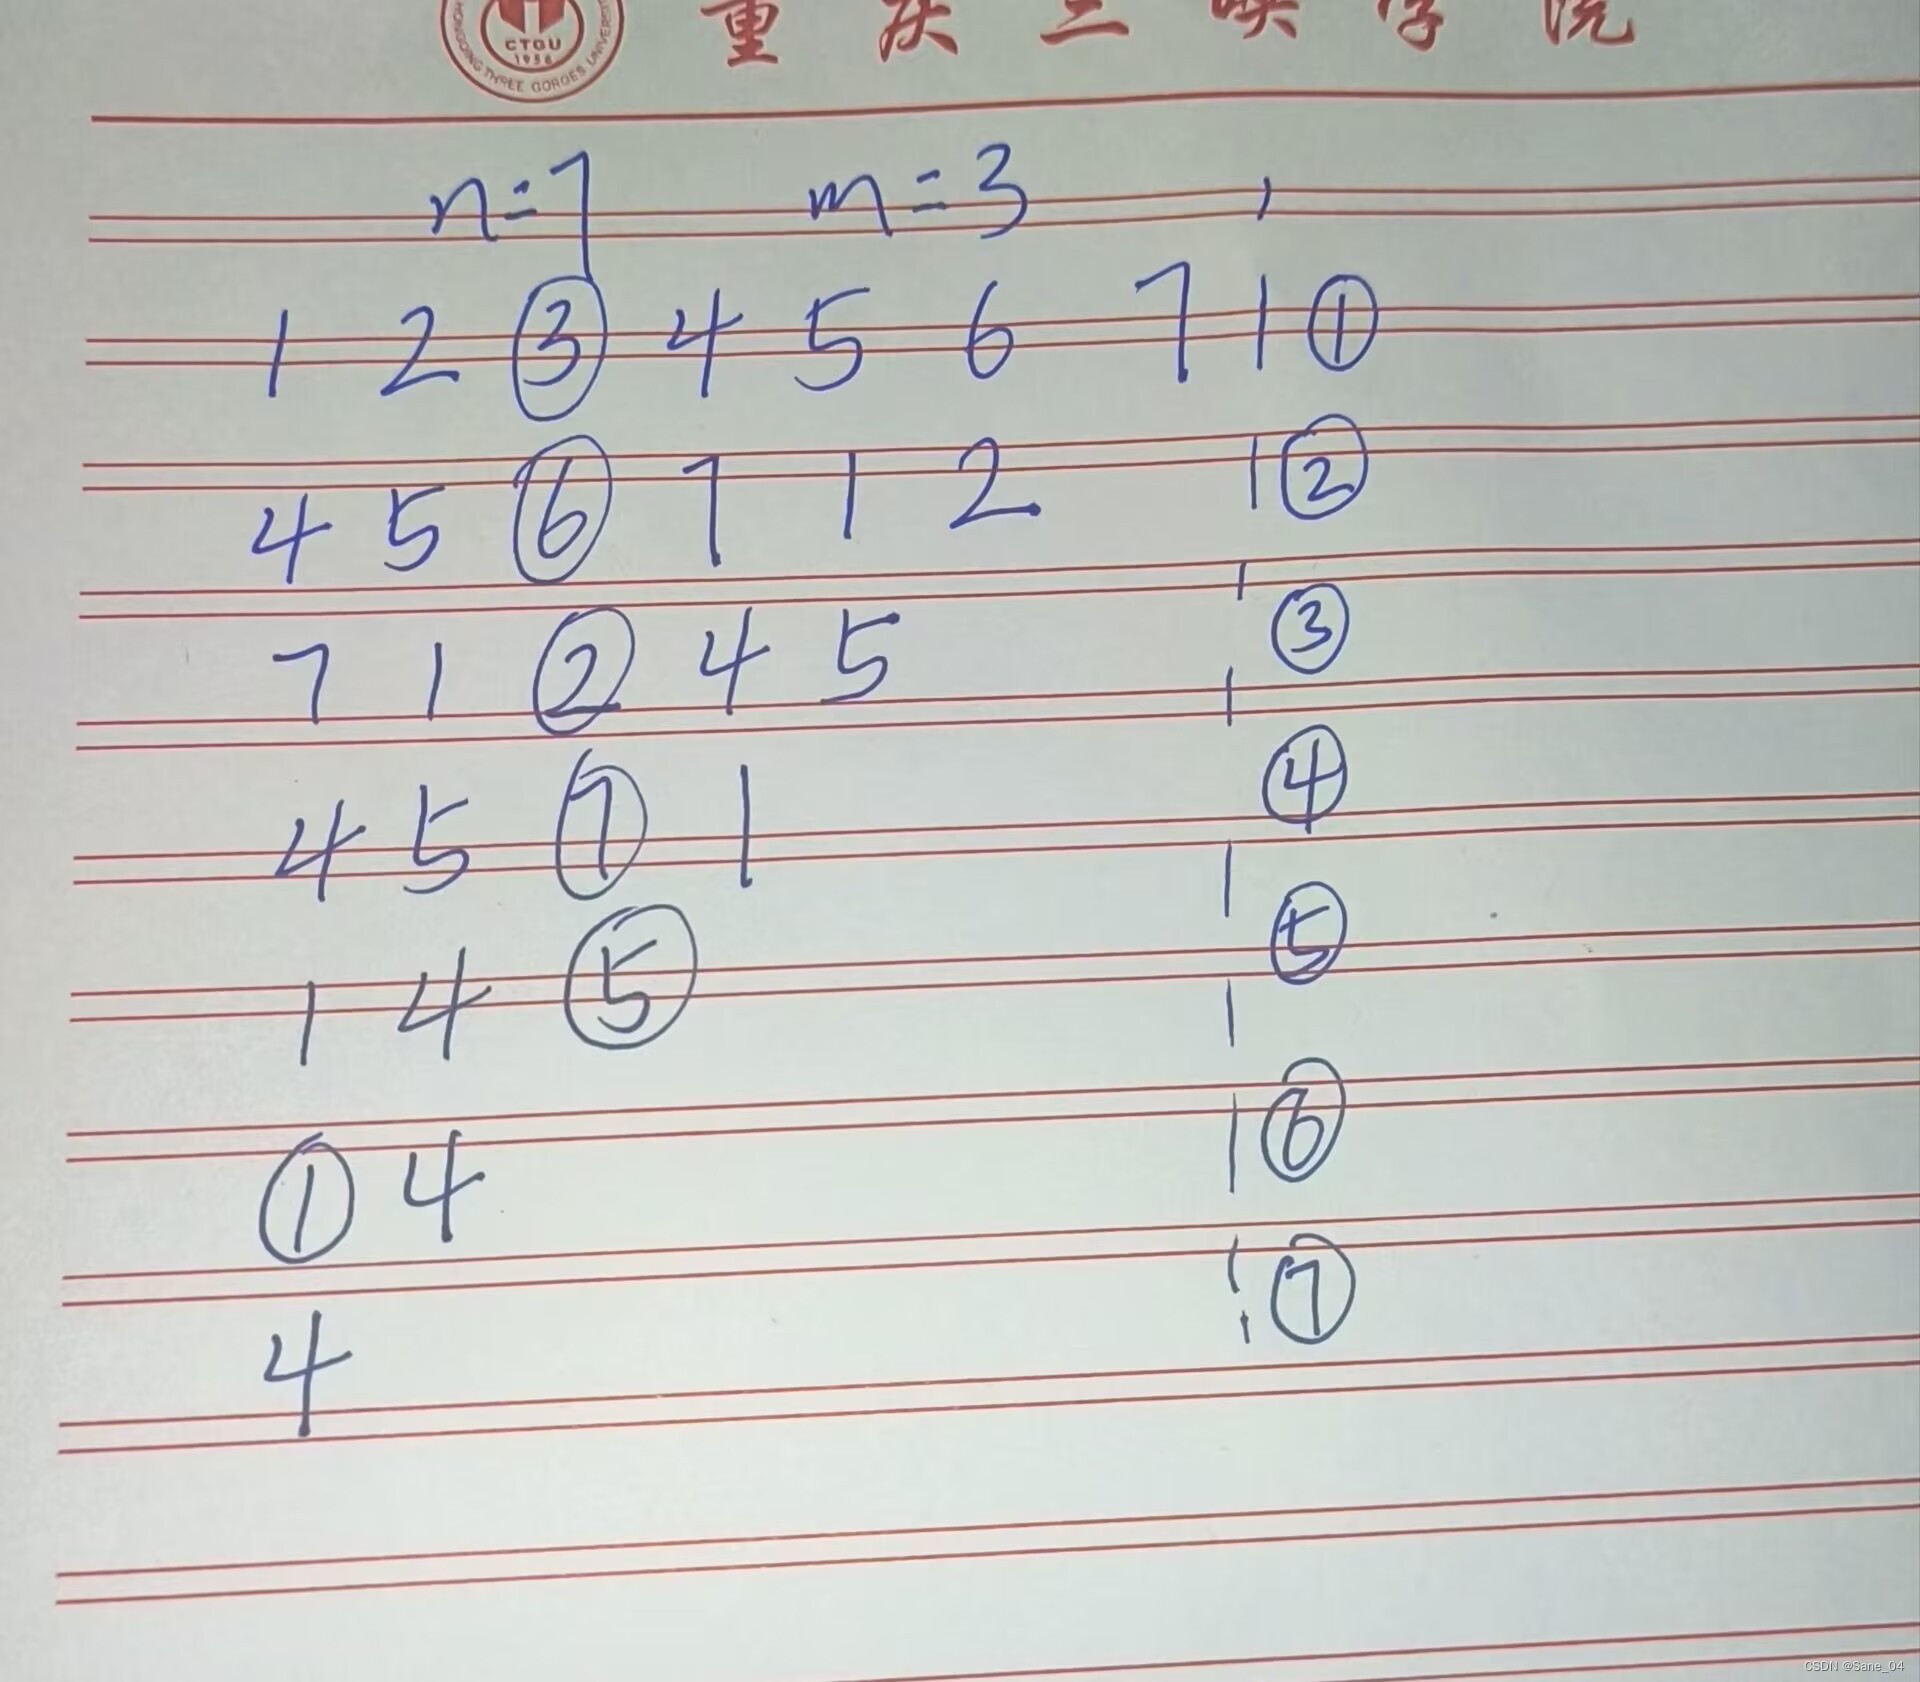 CTGU
1956
CHONGQING THREE GORGES UNIVERSITY
重庆三峡学院
n=7 m=3
1 2 ③ 4 5 6 7 | ①
4 5 ⑥ 7 1 2 | ②
7 1 ② 4 5 | ③
4 5 ⑦ 1 | ④
1 4 ⑤ | ⑤
① 4 | ⑥
4 | ⑦
CSDN @Sane_04